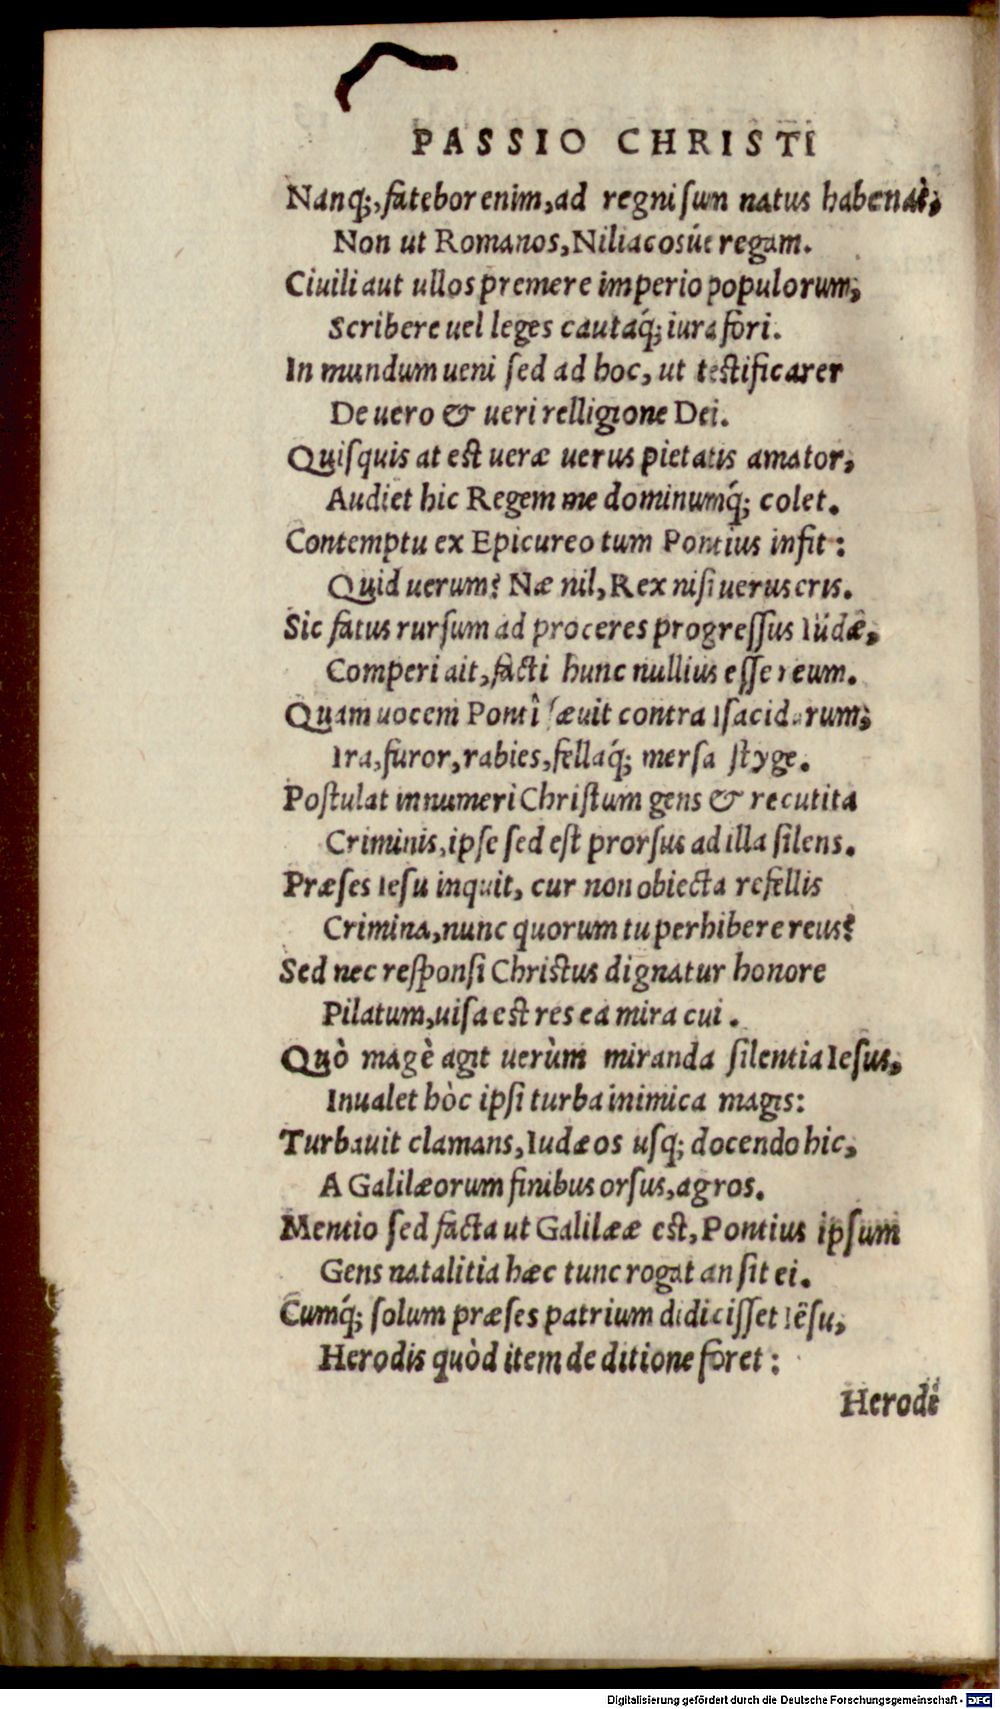 PASSIO CHRISTI
Nanq;, fatebor enim, ad regni sum natus habenas,
Non ut Romanos, Niliacosúe regam.
Ciuili aut ullos premere imperio populorum,
Scribere uel leges cautaq́; iura fori.
In mundum ueni sed ad hoc, ut testificarer
De uero & ueri relligione Dei.
Quisquis at est ueræ uerus pietatis amator,
Audiet hic Regem me dominumq́; colet.
Contemptu ex Epicureo tum Pontius infit:
Quid uerum? Næ nil, Rex nisi uerus eris.
Sic fatus rursum ad proceres progressus Iüdæ,
Comperi ait, facti hunc nullius esse reum.
Quam uocem Pontî sæuit contra Isacidarum,
Ira, furor, rabies, fellaq́; mersa styge.
Postulat innumeri Christum gens & recutita
Criminis, ipse sed est prorsus ad illa silens.
Præses Iesu inquit, cur non obiecta refellis
Crimina, nunc quorum tu perhibere reus?
Sed nec responsi Christus dignatur honore
Pilatum, uisa est res ea mira cui.
Quò magè agit uerùm miranda silentia Iesus,
Inualet hòc ipsi turba inimica magis:
Turbauit clamans, Iudæos usq; docendo hic,
A Galilæorum finibus orsus, agros.
Mentio sed facta ut Galilææ est, Pontius ipsum
Gens natalitia hæc tunc rogat an sit ei.
Cumq́; solum præses patrium didicisset Iësu,
Herodis quòd item de ditione foret:
Herodë
Digitalisierung gefördert durch die Deutsche Forschungsgemeinschaft - DFG